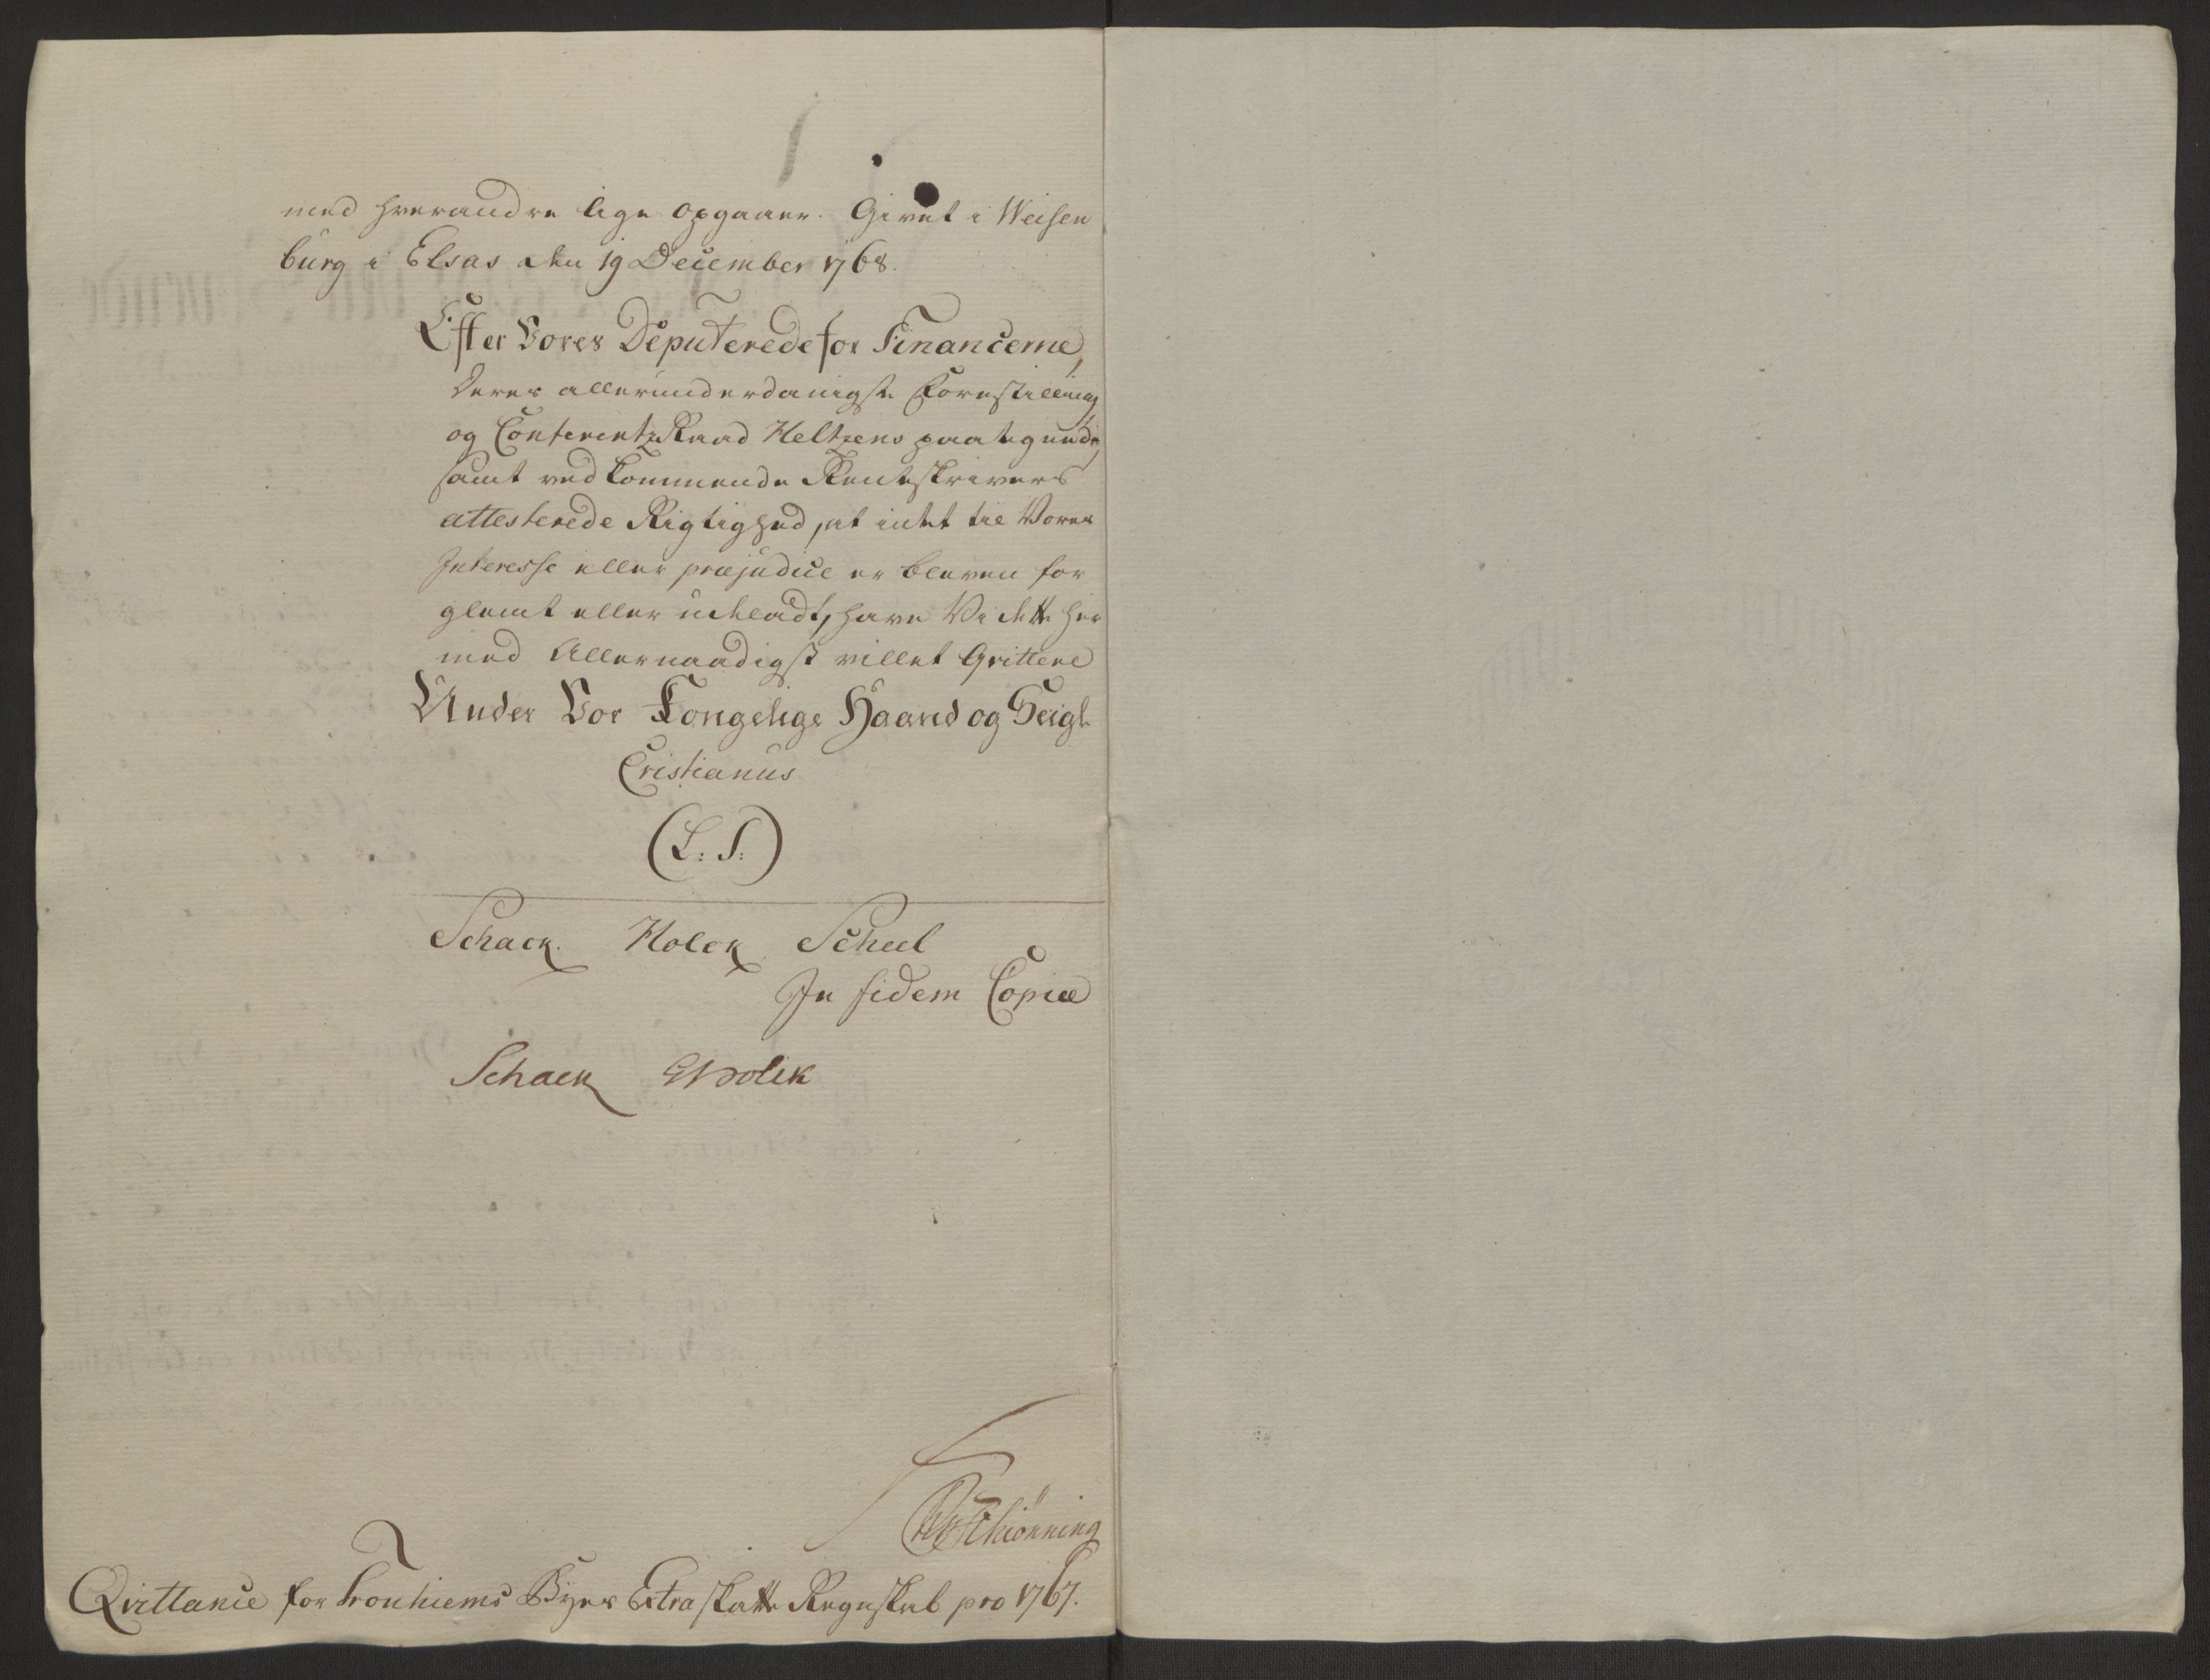 med hverandre lige opgaaer. Givet i Weisen
burg i Elsas den 19 December 1768.
Efter Vores Deputerede for Financerne,
Deres allerunderdanigste Forestilling,
og Conferentz Raad Heltzens paategnede,
samt vedkommende Renteskrivers
attesterede Rigtighed, at intet til Vores
Interesse eller præjudice er bleven for
glemt eller udeladt, have Vi dette her
med Allernaadigst villet Qvittere
Under Vor Kongelige Haand og Seigl
Cristianus
(L: S:)
Schack. Holck Scheel
In fidem Copiæ
Schack Holck
Schiønning
Qvittance for Tronhiems Byes Extra skatte Regnskab pro 1767.